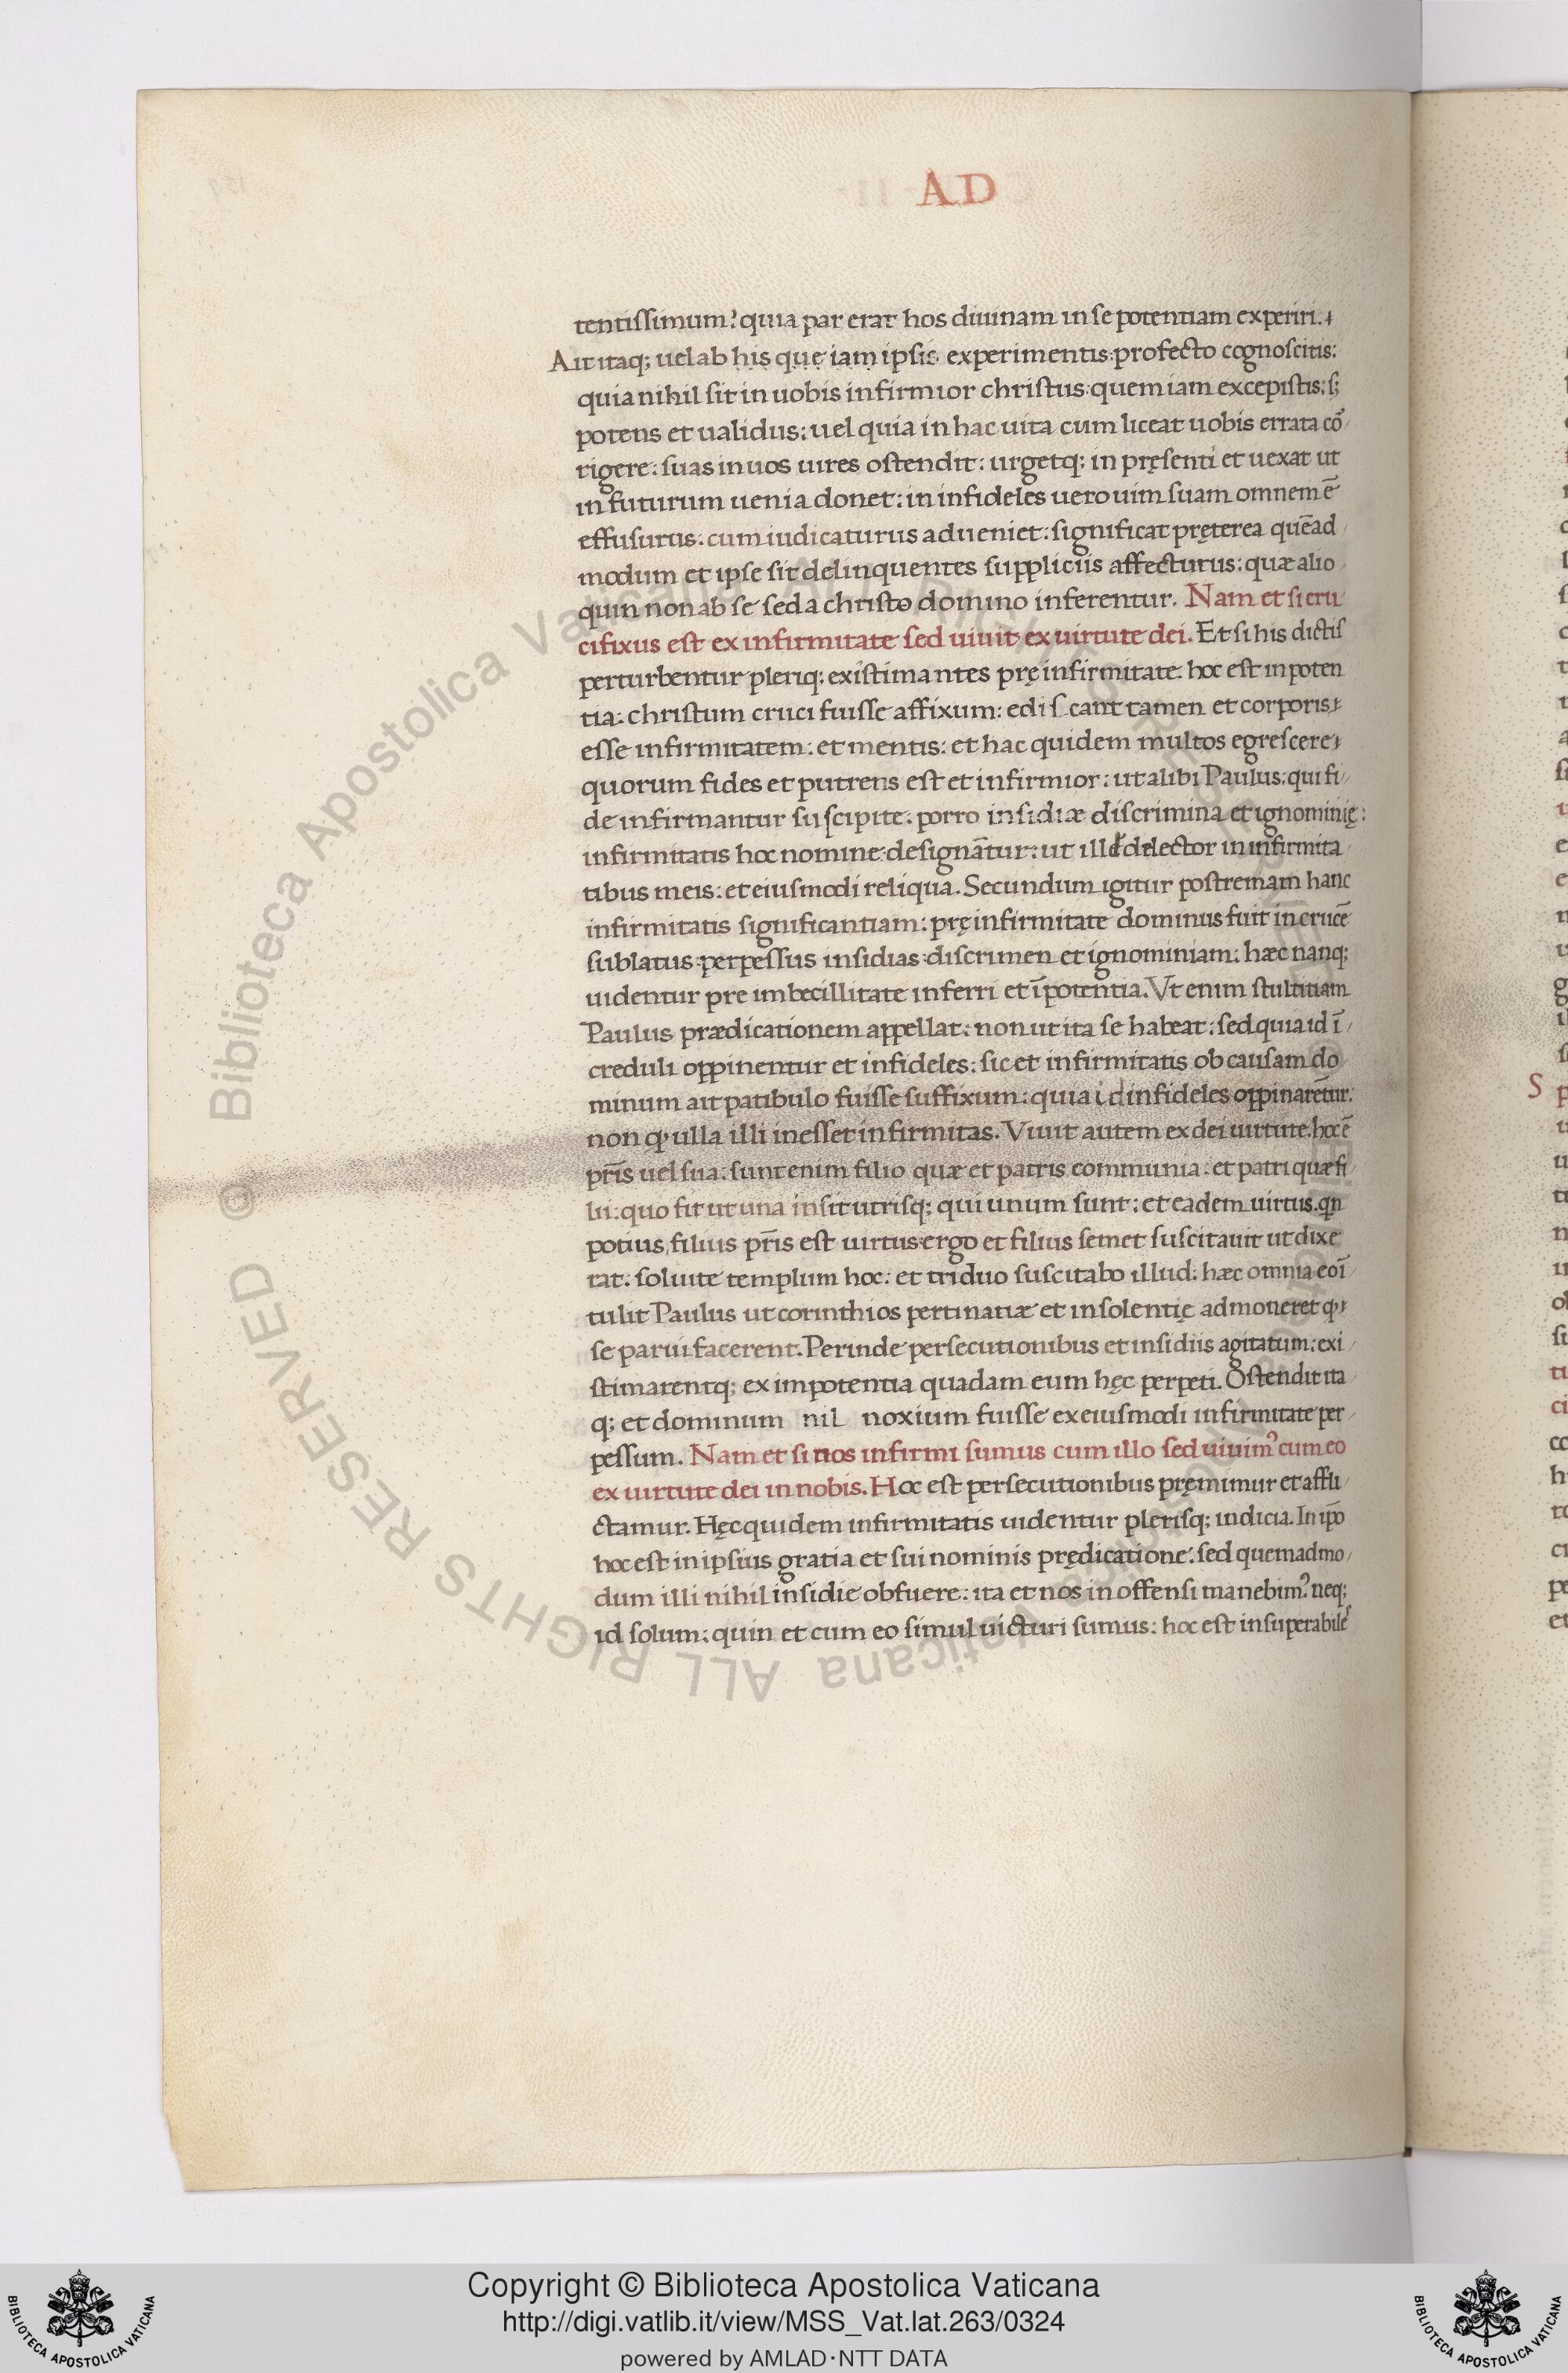 AD
tentissimum? quia par erat hos diuinam in se potentiam experiri.
Ait itaq; uel ab his quę iam ipsis experimentis: profecto cognoscitis:
quia nihil sit in uobis infirmior christus: quem iam excepistis: s;
potens et ualidus: uel quia in hac uita cum liceat uobis errata cō
rigere: suas in uos uires ostendit: urgetq; in pręsenti et uexat ut
in futurum uenia donet: in infideles uero uim suam omnem ē
effusurus: cum iudicaturus adueniet: significat pręterea quēad
modum et ipse sit delinquentes suppliciis affecturus: quæ alio
quin non ab se sed a christo domino inferentur. Nam et si cru
cifixus est ex infirmitate sed uiuit ex uirtute dei. Et si his dictis
perturbentur pleriq; existimantes prę infirmitate: hoc est inpoten
tia: christum cruci fuisse affixum: edi scant tamen et corporis
esse infirmitatem: et mentis: et hac quidem multos egrescere
quorum fides et putrens est et infirmior: ut alibi Paulus: qui fi
de infirmantur suscipite: porro insidiæ discrimina et ignominię:
infirmitatis hoc nomine designāntur: ut ille delector in infirmita
tibus meis: et eiusmodi reliqua. Secundum igitur postremam hanc
infirmitatis significantiam: prę infirmitate dominus fuit in crucē
sublatus: perpessus insidias discrimen et ignominiam: hæc nanq;
uidentur pre imbecillitate inferri et īpotentia. Vt enim stultitiam
Paulus prædicationem appellat: non ut ita se habeat: sed quia id ī
creduli oppinentur et infideles: sic et infirmitatis ob causam do
minum ait patibulo fuisse suffixum: quia id infideles oppinarētur:
non ꝙ ulla illi inesset infirmitas. Viuit autem ex dei uirtute: hoc ē
pr̄is uel sua: sunt enim filio quæ et patris communia: et patri quæ fi
lii: quo fit ut una insit utrisq; qui unum sunt: et eadem uirtus. qn
potius filius pr̄is est uirtus ergo et filius semet suscitauit ut dixe
rat: soluite templum hoc: et triduo suscitabo illud: hæc omnia eo ī
tulit Paulus ut corinthios pertinatiæ et insolentię admoneret ꝙ
se parui facerent. Perinde persecutionibus et insidiis agitatum: exi
stimarentq; ex impotentia quadam eum hęc perpeti. Ostendit ita
q; et dominum nil noxium fuisse ex eiusmodi infirmitate per
pessum. Nam et si nos infirmi sumus cum illo sed uiuim⁹ cum eo
ex uirtute dei in nobis. Hoc est persecutionibus pręmimur et affli
ctamur. Hęc quidem infirmitatis uidentur plerisq; indicia. In ip̄o
hoc est in ipsius gratia et sui nominis prędicatione: sed quemadmo
dum illi nihil insidie obfuere: ita et nos inoffensi manebim⁹: neq;
id solum: quin et cum eo simul uicturi sumus: hoc est insuperabile
S
© Biblioteca Apostolica Vaticana ALL RIGHTS RESERVED
Copyright © Biblioteca Apostolica Vaticana
http://digi.vatlib.it/view/MSS_Vat.lat.263/0324
powered by AMLAD·NTT DATA
BIBLIOTECA APOSTOLICA VATICANA
BIBLIOTECA APOSTOLICA VATICANA